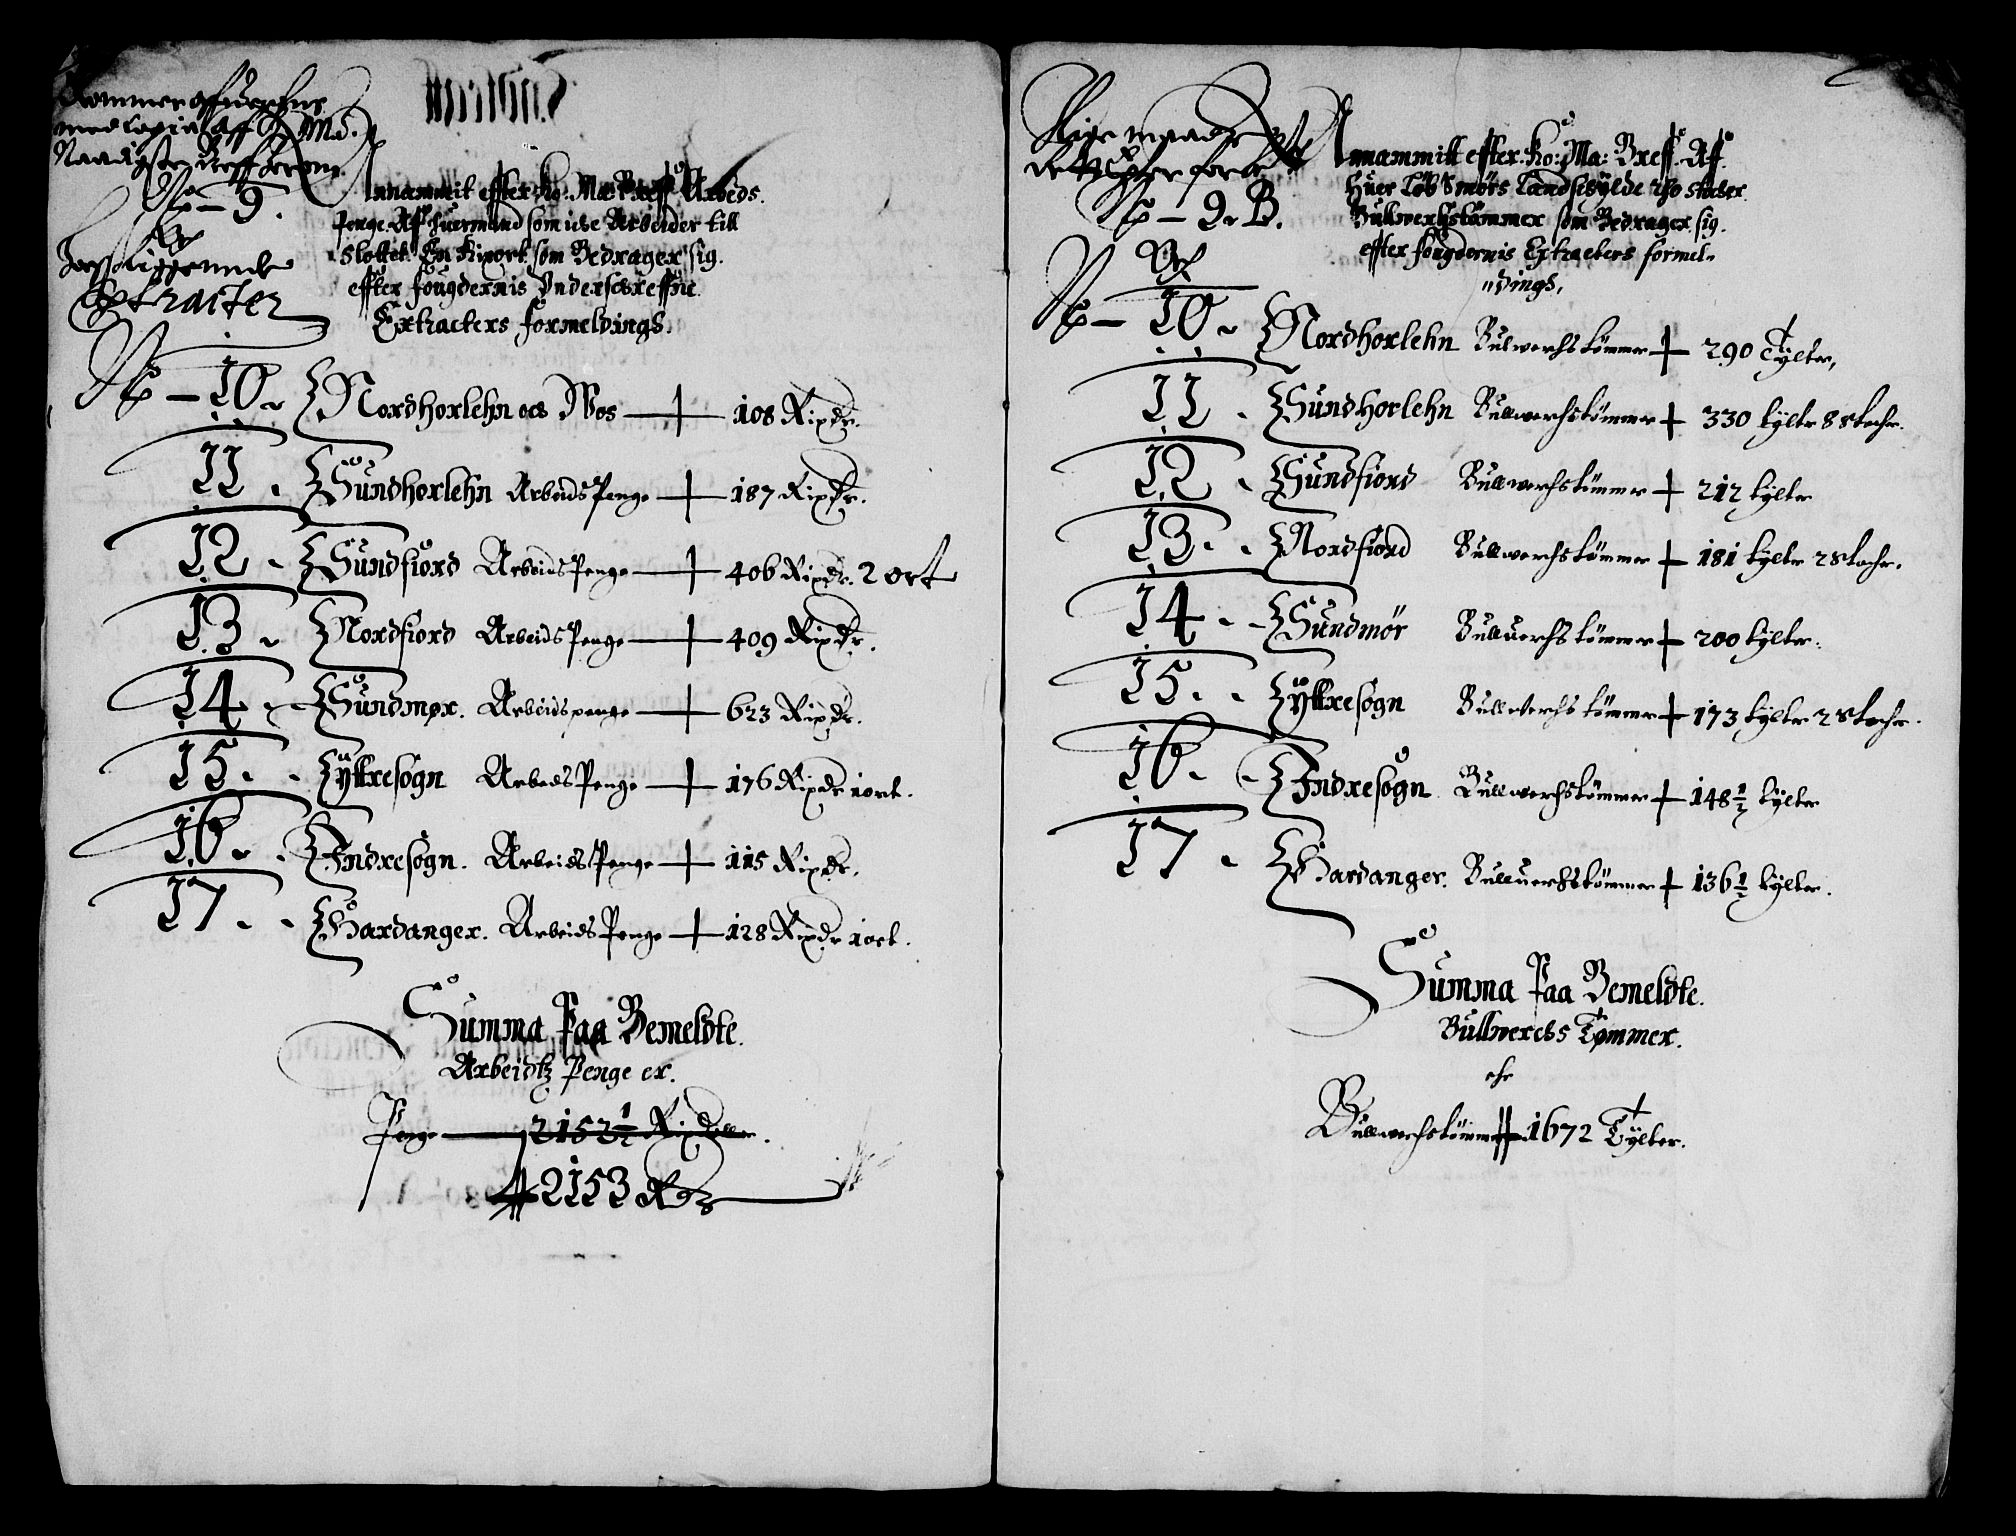 med Copia aff
Naadigste breff derom
N° – 9.
Och
hosliggende
Extracter
Annammit effter Ko: Ma: Breff Arbeds
Penge Aff huermand som icke Arbeider till
Slottet En Rixort som Bedrager sig
effter fougdernis Underschreffne
Extracters formeldings.
N° – 10. Nordhorlehn och Wos — 108 Rixdr.
11. Sundhorlehn Arbeids Penge — 187 Rixdr.
12. Sundfiord Arbeids Penge — 406 Rixdr. 2 ort
13. Nordfiord Arbeids Penge — 409 Rixdr.
14. Sundmør. Arbeids penge — 623 Rixdr.
15. Yttresogn Arbeds Penge — 176 Rixdr 1 ort.
16. Indresogn. Arbeids Penge — 115 Rixdr.
17. Hardanger. Arbeids Penge — 128 Rixdr 1 ort.
Summa Paa Bemeldte
Arbeidtz Penge er.
Penge — 2152½ Rixdaller.
2153 Rdr
Lige maade
N° – 9. B.
Och
Annammitt effter Ko: Ma: Breff. Aff
Huer Løb Smørs Landschylde tho Stocker
Bullwerchstømmer som Bedrager sig.
effter fougdernis Extracters formel-
dings,
N° – 10. Nordhorlehn Bulwerchstømmer — 290 Tylter,
11. Sundhorlehn Bullwerchstømmer — 330 tylter 8 Stocher.
12. Sundfiord Bullwerchstømmer — 212 tylter
13. Nordfiord Bullwerchstømmer — 181 tylter 2 Stocher.
14. Sundmør Bullverchstømmer — 200 tylter.
15. Yttresogn Bullwerchstømmer — 173 tylter 2 Stocher.
16. Indresogn Bullwerchstømmer — 148½ tylter
17. Hardanger. Bullverchstømmer — 136½ tylter.
Summa Paa Bemeldte.
Bullwerchs Tømmer.
ehr
Bullwerchstømmer 1672 Tylter.